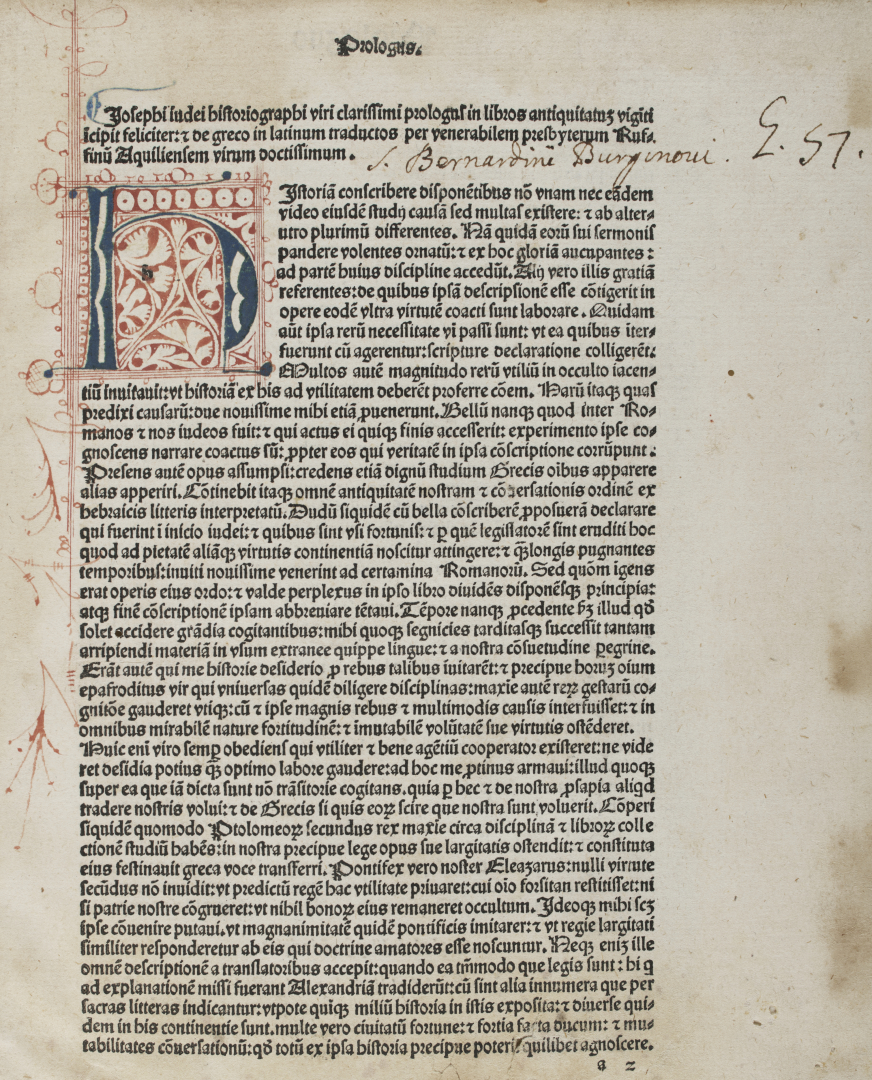 Prologus.
Iosephi iudei historiographi viri clarissimi prologus in libros antiquitatuꝫ vigīti
īcipit feliciter: ⁊ de greco in latinum traductos per venerabilem presbyterum Ruf⸗
finū Aquiliensem virum doctissimum.
S. Bernardini Burginoui. E. 57.
h
Istoriā conscribere disponētibus nō vnam nec eādem
video eiusdē studij causā sed multas existere: ⁊ ab alter⸗
utro plurimū differentes. Nā quidā eorū sui sermonis
pandere volentes ornatū: ⁊ ex hoc gloriā aucupantes:
ad partē huius discipline accedūt. Alij vero illis gratiā
referentes: de quibus ipsā descripsionē esse cōtigerit in
opere eodē vltra virtutē coacti sunt laborare. Quidam
aūt ipsa rerū necessitate vī passi sunt: vt ea quibus īter⸗
fuerunt cū agerentur: scripture declaratione colligerēt.
Multos autē magnitudo rerū vtiliū in occulto iacen⸗
tiū inuitauit: vt historiā ex his ad vtilitatem deberēt proferre cōem. Harū itaqꝫ quas
predixi causarū: due nouissime mihi etiā ꝓuenerunt. Bellū nanqꝫ quod inter Ro⸗
manos ⁊ nos iudeos fuit: ⁊ qui actus ei quiqꝫ finis accesserit: experimento ipse co⸗
gnoscens narrare coactus sū: ꝓpter eos qui veritatē in ipsa cōscriptione corrūpunt.
Presens autē opus assumpsi: credens etiā dignū studium Grecis oībus apparere
alias apperiri. Cōtinebit itaqꝫ omnē antiquitatē nostram ⁊ cōuersationis ordinē ex
hebraicis litteris interpretatū. Dudū siquidē cū bella cōscriberē ꝓposuerā declarare
qui fuerint ī inicio iudei: ⁊ quibus sint vsi fortunis: ⁊ ꝑ quē legislatorē sint eruditi hoc
quod ad pietatē aliāqꝫ virtutis continentiā noscitur attingere: ⁊ q̄ꝫ longis pugnantes
temporibus: inuiti nouissime venerint ad certamina Romanorū. Sed quōm īgens
erat operis eius ordo: ⁊ valde perplexus in ipso libro diuidēs disponēsqꝫ principia:
atqꝫ finē cōscriptionē ipsam abbreuiare tētaui. Tēpore nanqꝫ ꝓcedente sꝫ illud qđ
solet accidere grādia cogitantibus: mihi quoqꝫ segnicies tarditasqꝫ successit tantam
arripiendi materiā in vsum extranee quippe lingue: ⁊ a nostra cōsuetudine ꝑegrine.
Erāt autē qui me historie desiderio ꝓ rebus talibus īuitarēt: ⁊ precipue horuꝫ oium
epafroditus vir qui vniuersas quidē diligere disciplinas: maxīe autē reꝝ gestarū co⸗
gnitōe gauderet vtiqꝫ: cū ⁊ ipse magnis rebus ⁊ multimodis causis interfuisset: ⁊ in
omnibus mirabilē nature fortitudinē: ⁊ īmutabilē volūtatē sue virtutis ostēderet.
Huic enī viro semꝑ obediens qui vtiliter ⁊ bene agētiū cooperator existeret: ne vide
ret desidia potius q̄ꝫ optimo labore gaudere: ad hoc me ꝓtinus armaui: illud quoqꝫ
super ea que iā dicta sunt nō trāsitorie cogitans. quia ꝑ hec ⁊ de nostra ꝓsapia aliqd
tradere nostris volui: ⁊ de Grecis si quis eoꝝ scire que nostra sunt voluerit. Cōperi
siquidē quomodo Ptolomeoꝝ secundus rex maxīe circa disciplinā ⁊ libroꝝ colle
ctionē studiū habēs: in nostra precipue lege opus sue largitatis ostendit: ⁊ constituta
eius festinauit greca voce transferri. Pontifex vero noster Eleazarus: nulli virtute
secūdus nō inuidit: vt predictū regē hac vtilitate priuaret: cui oīo forsitan restitisset: ni
si patrie nostre cōgrueret: vt nihil bonoꝝ eius remaneret occultum. Ideoqꝫ mihi scꝫ
ipse cōuenire putaui. vt magnanimitatē quidē pontificis imitarer: ⁊ vt regie largitati
similiter responderetur ab eis qui doctrine amatores esse noscuntur. Neqꝫ eniꝫ ille
omnē descriptionē a translatoribus accepit: quando ea tm̄modo que legis sunt: hi q
ad explanationē missi fuerant Alexandriā tradiderūt: cū sint alia innumera que per
sacras litteras indicantur: vtpote quiqꝫ miliū historia in istis exposita: ⁊ diuerse qui⸗
dem in his continentie sunt. multe vero ciuitatū fortune: ⁊ fortia facta ducum: ⁊ mu⸗
tabilitates cōuersationū: qđ totū ex ipsa historia precipue poterit quilibet agnoscere.
a 2